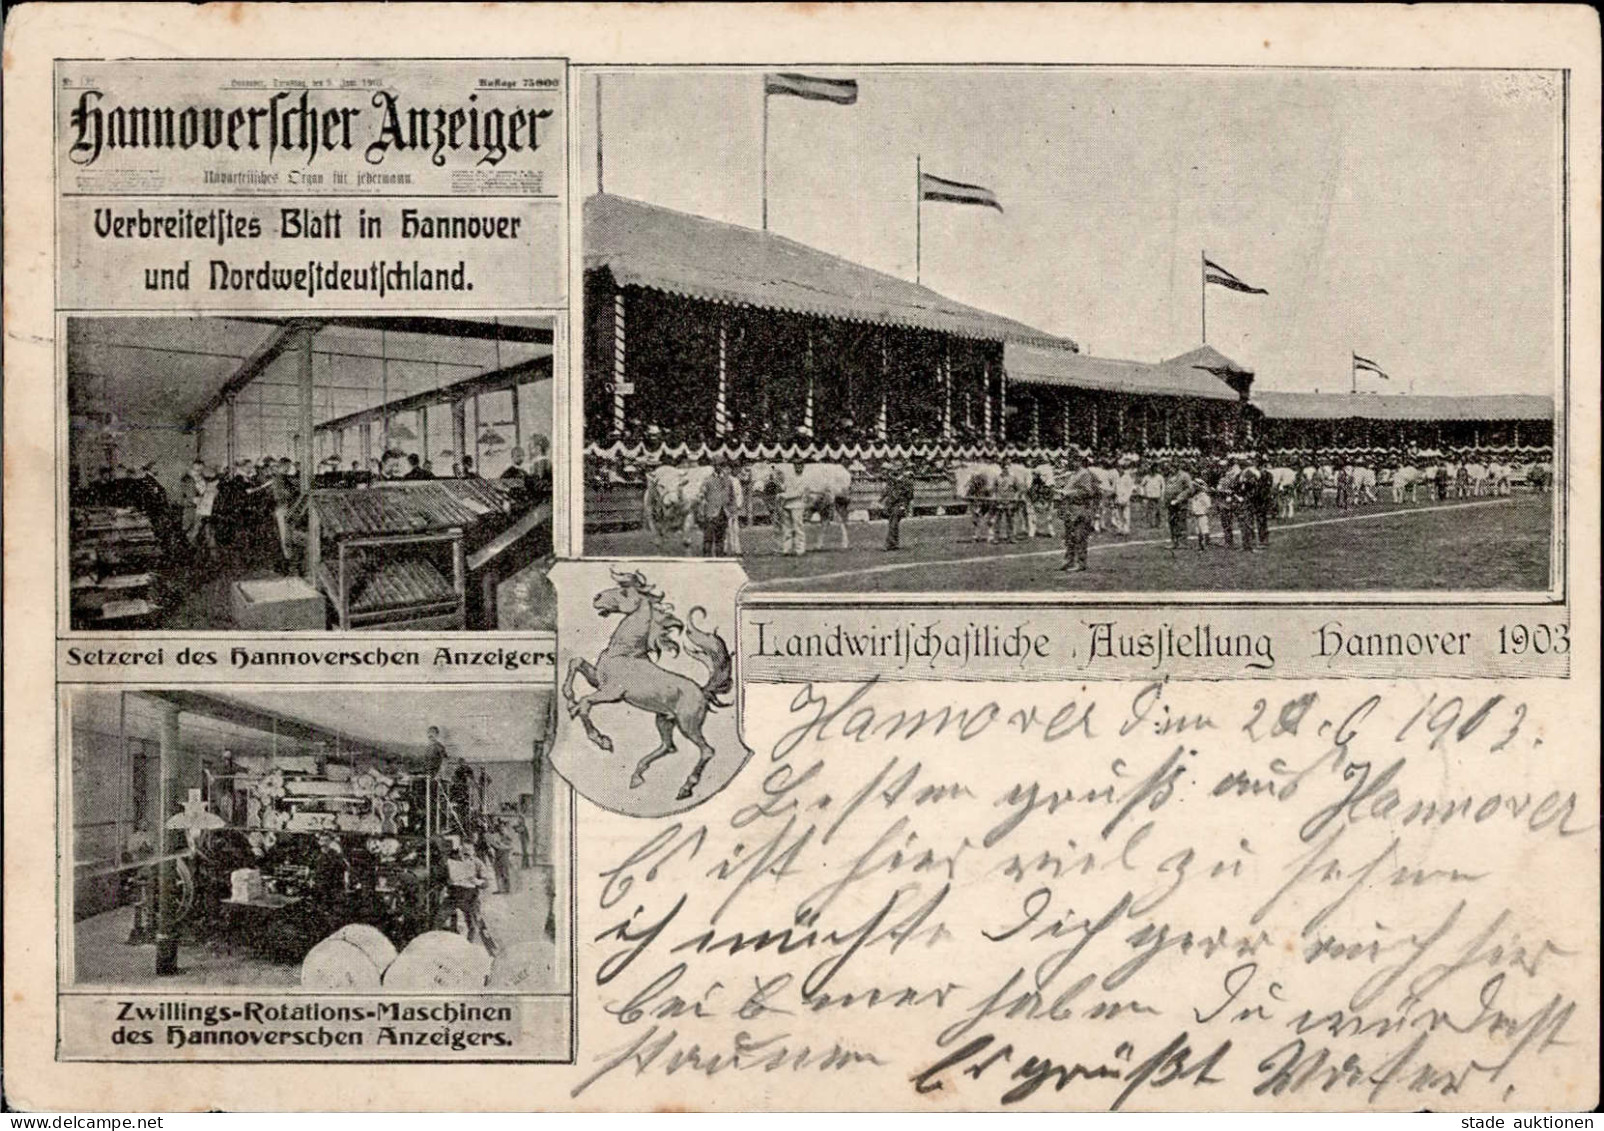 Hannover, Dienstag, den 9. Juni 1903
Auflage 75800
Hannoverscher Anzeiger
Unparteiisches Organ für jedermann.
Verbreitetstes Blatt in Hannover
und Nordwestdeutschland.
Setzerei des Hannoverschen Anzeigers
Zwillings-Rotations-Maschinen
des Hannoverschen Anzeigers.
Landwirtschaftliche Ausstellung Hannover 1903
Hannover den 20.6 1903.
Besten gruß aus Hannover
Es ist hier viel zu sehen
ich möchte Dich gern auch hier
bei haben Du würdest
staunen Es grüßt Vater.
stade auktionen